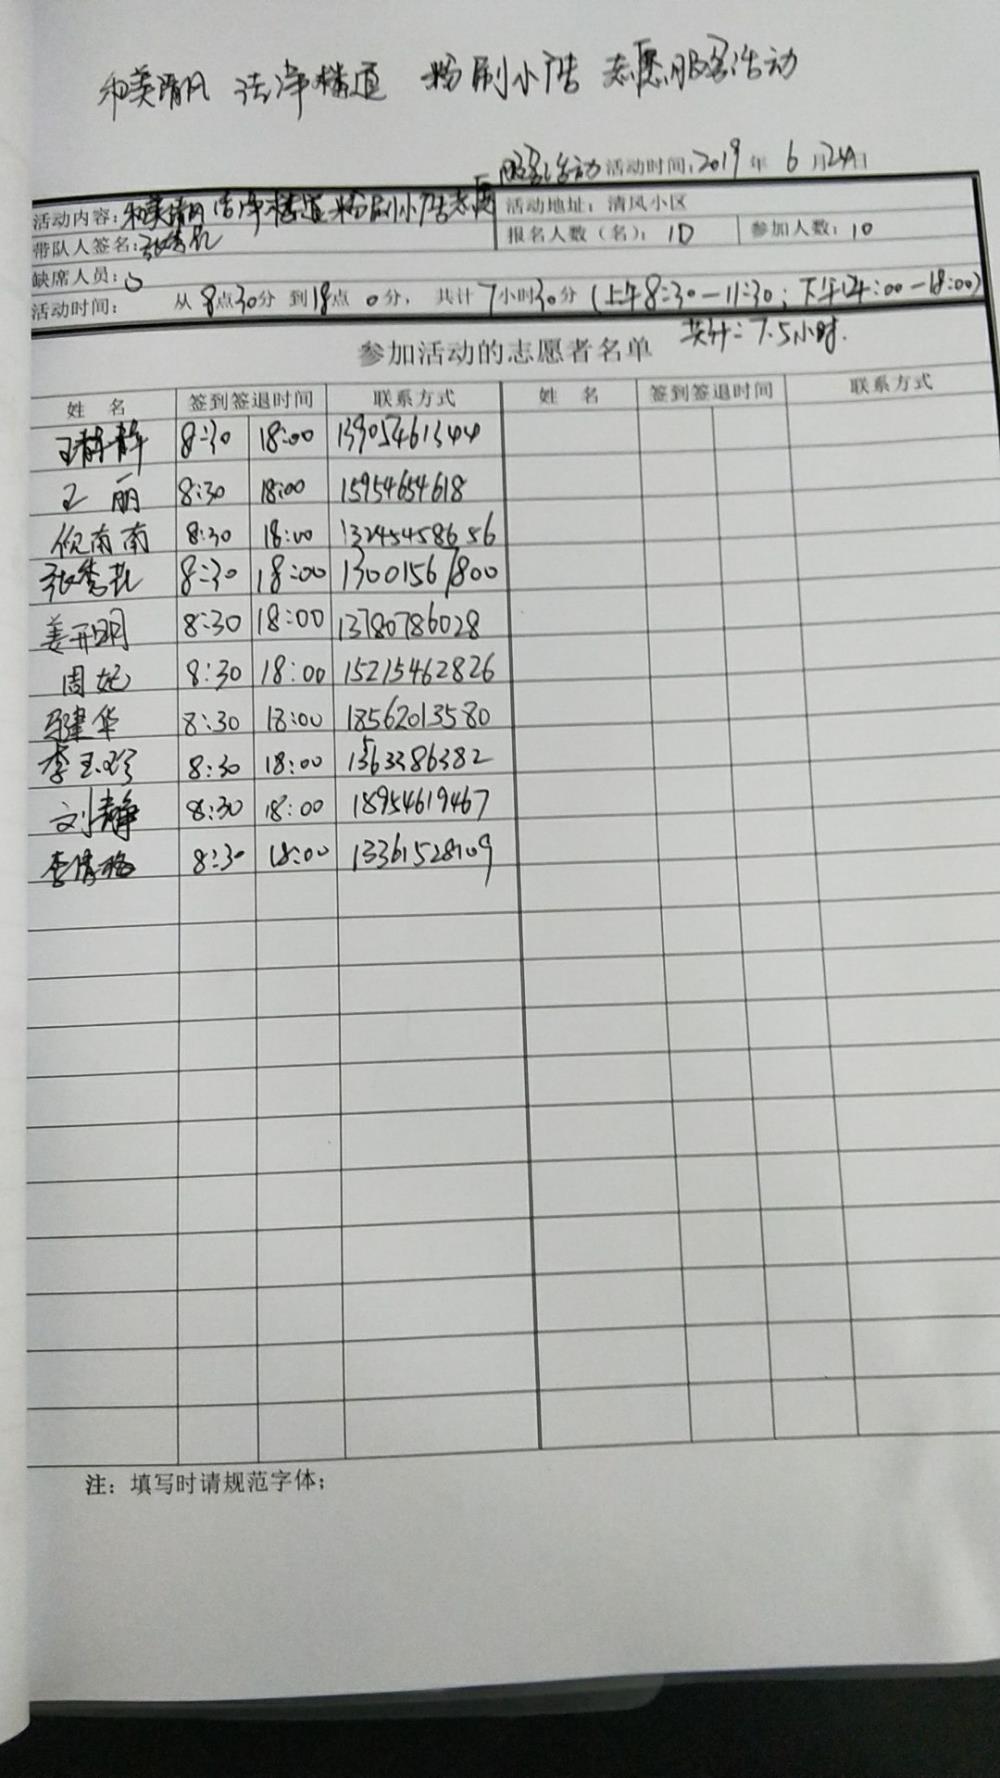 和美清风 洁净楼道 粉刷小广告 志愿服务活动
服务活动 活动时间:2019年6月24日
活动内容:和美清风洁净楼道粉刷小广告志愿 活动地址:清风小区
带队人签名:张秀花 报名人数(名):10 参加人数:10
缺席人员:0
活动时间: 从8点30分 到18点0分, 共计7小时30分(上午8:30-11:30;下午14:00-18:00)
参加活动的志愿者名单 共计:7.5小时.
姓 名 签到签退时间 联系方式 姓 名 签到签退时间 联系方式
王静静 8:30 18:00 13905461344
王丽 8:30 18:00 15954654618
倪南南 8:30 18:00 13245458656
张秀花 8:30 18:00 13001567800
姜开明 8:30 18:00 13780786028
周妃 8:30 18:00 15215462826
马建华 8:30 18:00 18562013580
李玉珍 8:30 18:00
刘静 8:30 18:00 18954619467
李倩 8:30 18:00 13361528109
注:填写时请规范字体;